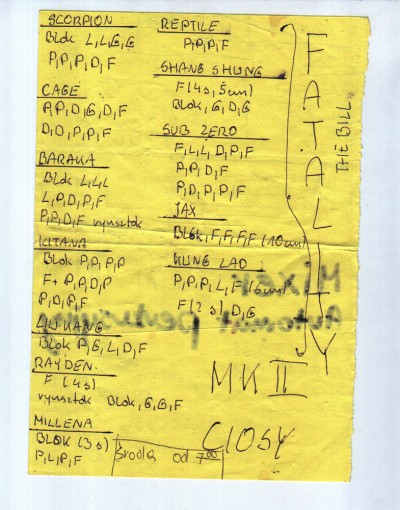 SCORPION
Blok L,L,G,G
P,P,P,D,F
CAGE
P,P,D,G,D,F
D,D,P,P,F
BARAKA
Blok L,L,L
L,P,D,P,F
P,P,D,F rynsztok
KITANA
Blok P,P,P,P
F+P,P,D,P
P,D,P,F
LIU KANG
Blok P,G,L,D,F
RAYDEN
F (4s)
rynsztok Blok,G,G,F
MILLENA
BLOK (3s)
P,L,P,F
REPTILE
P,P,P,F
SHANG SHUNG
F(4s,5cm)
BLOK,G,D,G
SUB ZERO
F,L,L,D,P,F
P,P,D,F
P,D,P,P,F
JAX
BLOK,F,F,F,F (10cm)
KUNG LAO
P,P,P,L,F (6cm)
F(2s),D,G
FATALITY
THE BILL
Mixer
Automat
MK II
CIOSY
Środa od 7⁰⁰